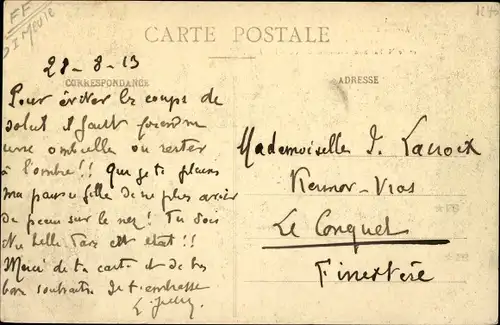 FF
CARTE POSTALE
28-8-13
CORRESPONDANCE
ADRESSE
Pour éviter les coups de
soleil il faut prendre
une ombrelle ou rester
à l'ombre!! Que je te plains
ma pauvre fille de ne plus avoir
de peau sur le nez! Tu dois
être belle dans cet état!!
Merci de ta carte et de tes
bons souhaits. Je t'embrasse
Mademoiselle J. Lacroix
Kermor-Vras
Le Conquet
Finistère